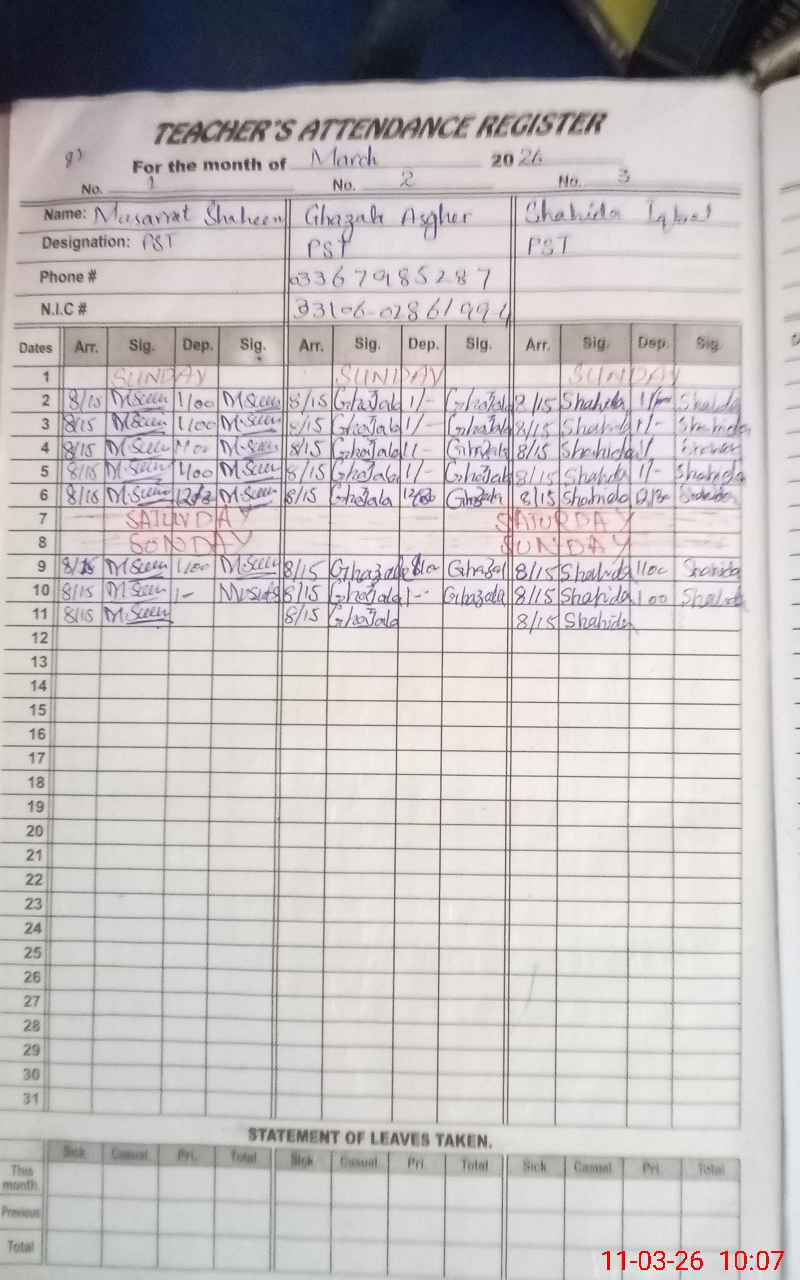 TEACHER'S ATTENDANCE REGISTER
8)
For the month of March 2026
No. 1 No. 2 No. 3
Name: Musarrat Shaheen Ghazala Asgher Shahida Iqbal
Designation: PST PST PST
Phone # 03367985287
N.I.C #
Dates Arr. Sig. Dep. Sig. Arr. Sig. Dep. Sig. Arr. Sig. Dep. Sig.
1 SUNDAY SUNDAY SUNDAY
2 8/15 M.Seen 1/00 M.Seen 8/15 Ghazala 1/- Ghazala 8/15 Shahida Shahida
3 8/15 M.Seen 1/00 M.Seen 8/15 Ghazala 1/- Ghazala 8/15 Shahida 1/- Shahida
4 8/15 M.Seen M.Seen 8/15 Ghazala 1/- Ghazala 8/15 Shahida
5 8/15 M.Seen 1/00 M.Seen 8/15 Ghazala 1/- Ghazala 8/15 Shahida 1/- Shahida
6 8/15 M.Seen M.Seen 8/15 Ghazala Ghazala 8/15 Shahida Shahida
7 SATURDAY SATURDAY
8 SUNDAY SUNDAY
9 8/15 M.Seen 1/00 M.Seen 8/15 Ghazala Ghazal 8/15 Shahida 1/00 Shahida
10 8/15 M.Seen 1- 8/15 Ghazala 1-- Ghazala 8/15 Shahida 1 00 Shahida
11 8/15 M.Seen 8/15 Ghazala 8/15 Shahida
12
13
14
15
16
17
18
19
20
21
22
23
24
25
26
27
28
29
30
31
STATEMENT OF LEAVES TAKEN.
Sick Casual Pri. Total Sick Casual. Pri Total Sick Casual Pri. Total
This month.
Previous
Total
11-03-26 10:07